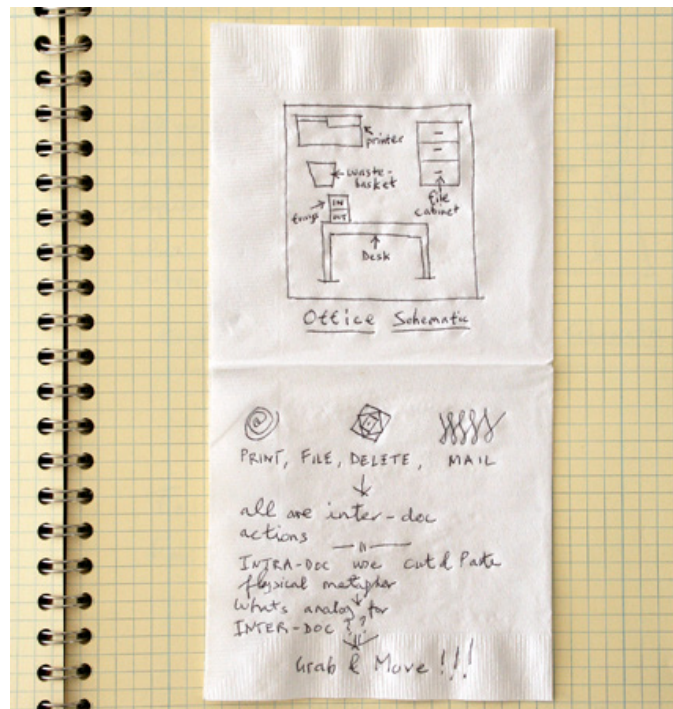 printer
waste-
basket
file
cabinet
trays
IN
OUT
Desk
Office Schematic
PRINT, FILE, DELETE, MAIL
all are inter-doc
actions
INTRA-DOC we cut & Paste
physical metaphor
Whats analog for
INTER-DOC ??
Grab & Move !!!